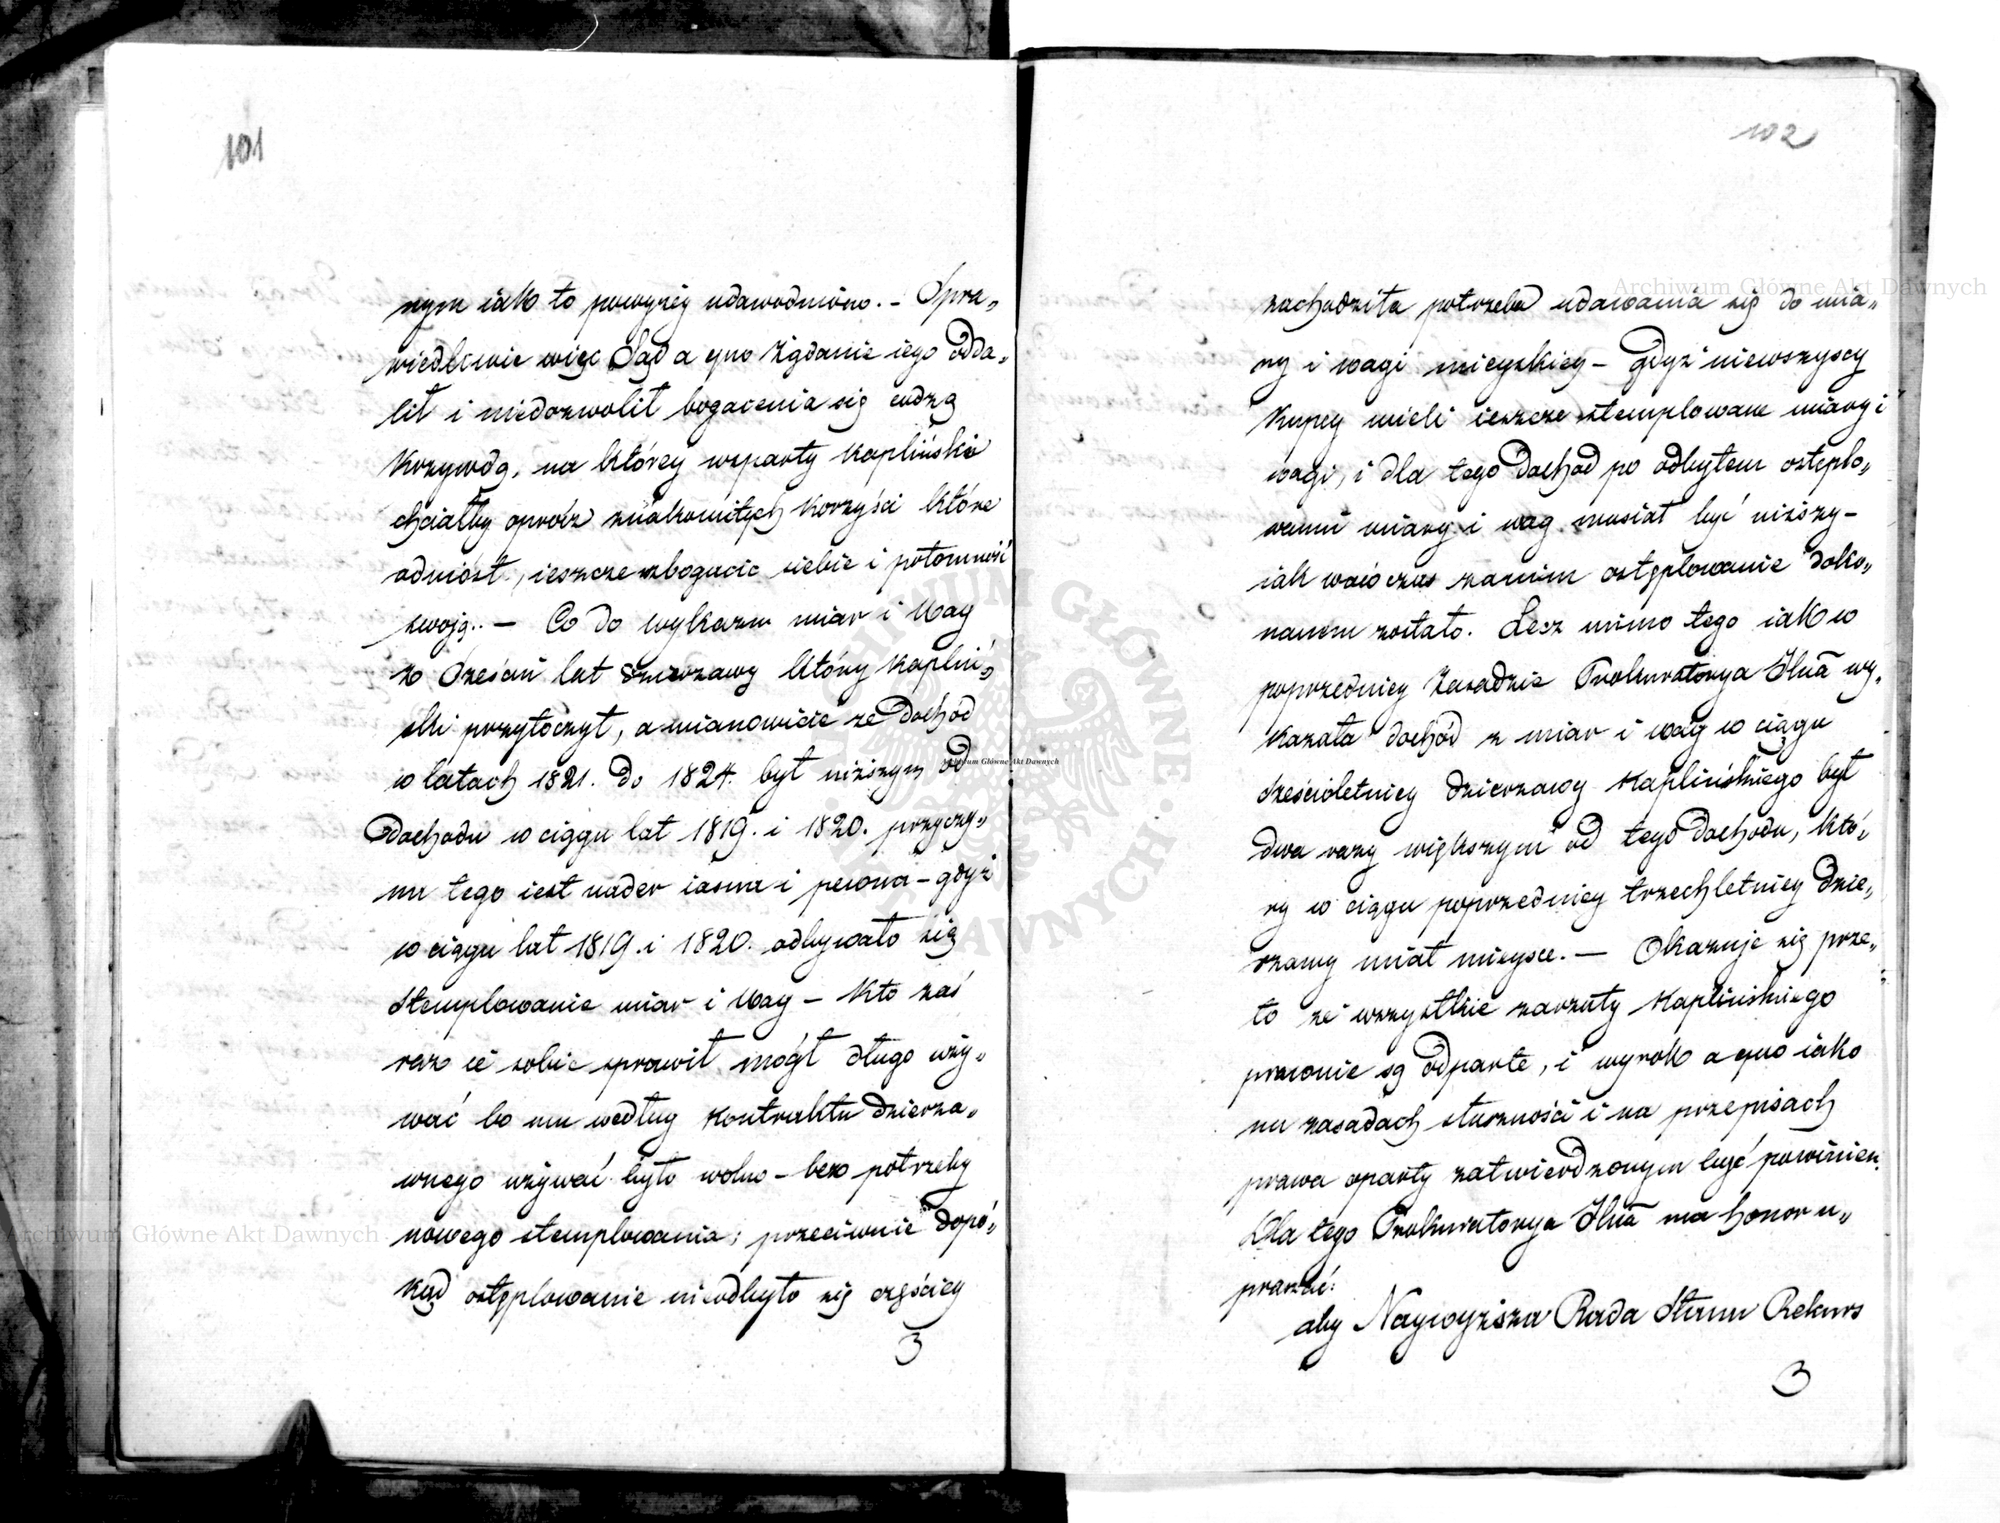 101
nym iak to powyżéy udowodniono. – Spra„
wiedliwie więc Sąd a quo żądanie iego odda„
lił i niedozwolił bogacenia się cudzą
Krzywdą, na któréy wsparty Kapliński
chciałby oprócz znakomitych korzyści które
odniósł, ieszcze zbogacić siebie i potomność
swoią. – Co do wykazu miar i Wag
z sześciu lat dzierzawy który Kapliń„
ski przytoczył, a mianowicie że Dochód
w latach 1821. do 1824. był niższym od
Dochodu w ciągu lat 1819. i 1820. przyczy„
na tego iest nader iasna i pewna – gdyż
w ciągu lat 1819. i 1820. odbywało się
stemplowanie miar i Wag – Kto zaś
raz ie sobie sprawił mógł długo uży„
wać bo mu według Kontraktu dzierza„
wnego używać było wolno – bez potrzeby
nowego stemplowania; przeciwnie dopó„
kąd ostęplowanie nieodbyło się częściey
3
102
zachodziła potrzeba udawania się do mia„
ry i wagi mieyskiey – gdyż niewszyscy
Kupcy mieli ieszcze stemplowane miary i
wagi, i dla tego dochód po odbytem ostęplo„
waniu miary i wag musiał być niższy –
iak wówczas zanim ostęplowanie doko„
nanem zostało. Lecz mimo tego iak w
poprzedniey Zasadzie Prokuratorya Jlna wy„
kazała dochód z miar i wag w ciągu
sześcioletniey dzierzawy Kaplińskiego był
dwa razy większym od tego dochodu, któ„
ry w ciągu poprzedniey trzechletniey dzie„
rzawy miał mieysce. – Okazuje się prze„
to że wszystkie zarzuty Kaplińskiego
prawnie są odparte, i wyrok a quo iako
na zasadach słuszności i na przepisach
prawa oparty zatwierdzonym być powinien.
Dla tego Prokuratorya Jlna ma honor u„
praszać:
aby Naywyższa Rada Stanu Rekurs
3
Archiwum Główne Akt Dawnych
Archiwum Główne Akt Dawnych
Archiwum Główne Akt Dawnych
ARCHIWUM GŁÓWNE · AKT DAWNYCH ·